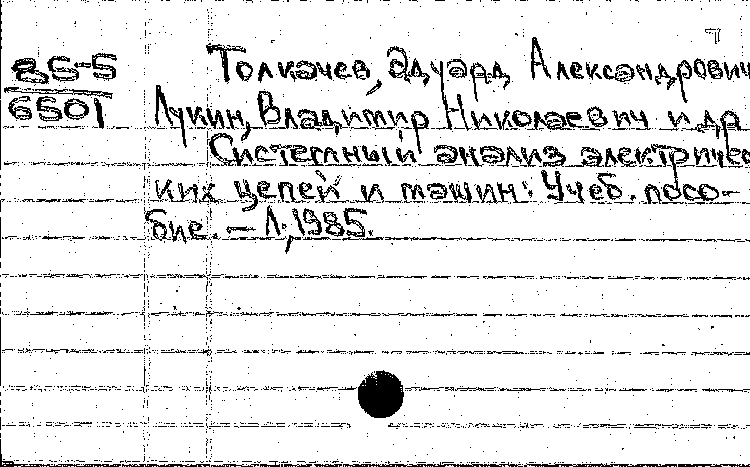 85-5
6501
Толкачев, Эдуард Александрович
Лукин, Владимир Николаевич и др
Системный анализ электричес
ких цепей и машин: Учеб. посо-
бие. — Л., 1985.